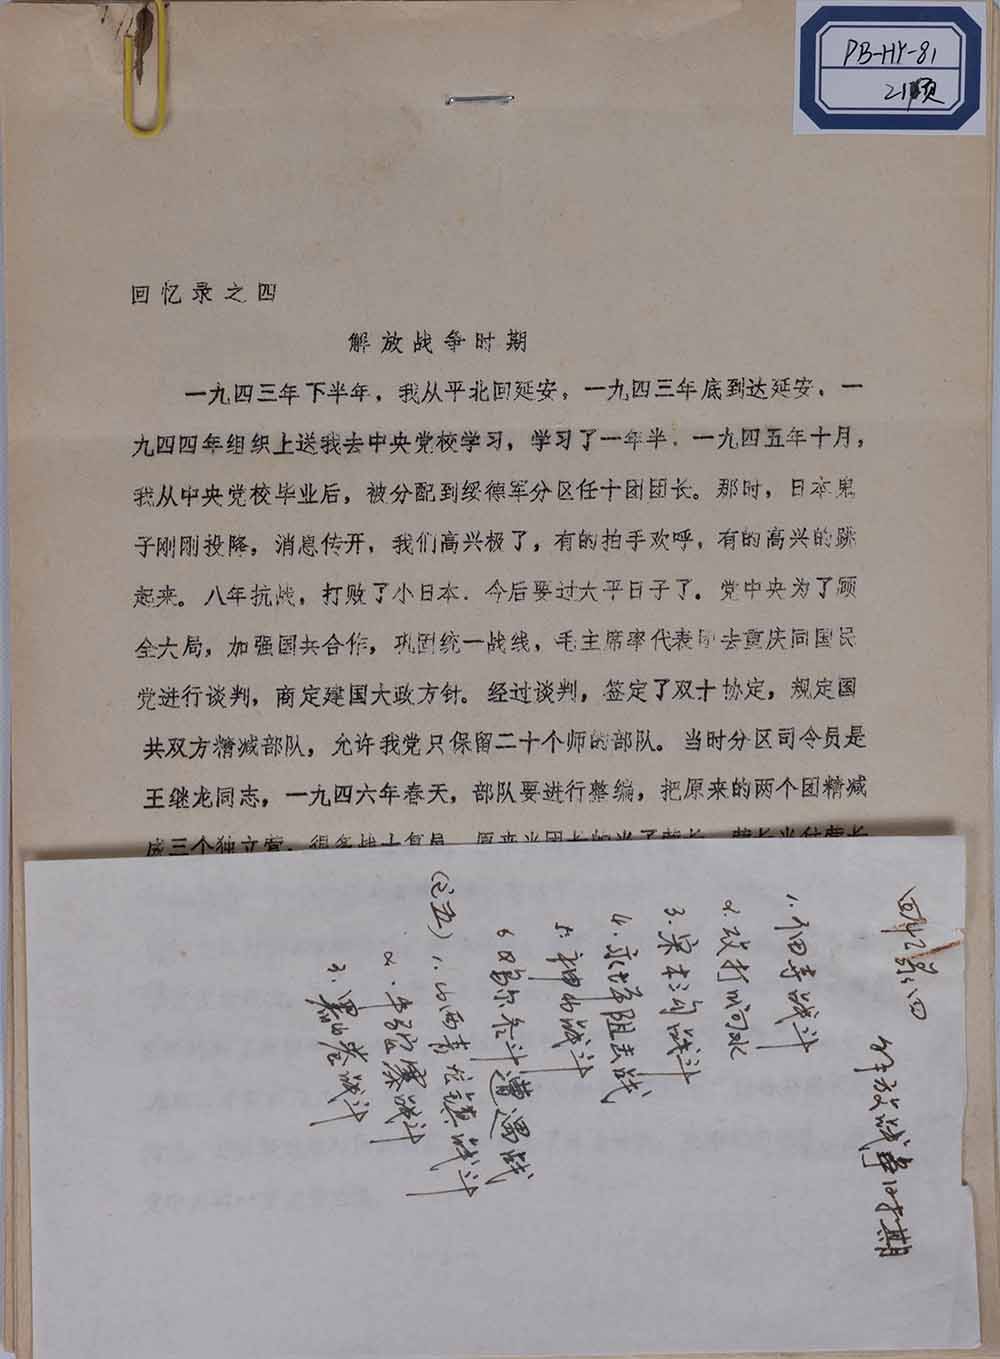 PB-HY-81
21页
回忆录之四
解放战争时期
一九四三年下半年，我从平北回延安，一九四三年底到达延安，一
九四四年组织上送我去中央党校学习，学习了一年半．一九四五年十月，
我从中央党校毕业后，被分配到绥德军分区任十团团长。那时，日本鬼
子刚刚投降，消息传开，我们高兴极了，有的拍手欢呼，有的高兴的跳
起来。八年抗战，打败了小日本．今后要过太平日子了．党中央为了顾
全大局，加强国共合作，巩固统一战线，毛主席率代表团去重庆同国民
党进行谈判，商定建国大政方针。经过谈判，签定了双十协定，规定国
共双方精减部队，允许我党只保留二十个师的部队。当时分区司令员是
王继龙同志，一九四六年春天，部队要进行整编，把原来的两个团精减
成三个独立营，很多战士复员，原来当团长的当了营长，营长当付营长
回忆录四
解放战争时期
1.
战斗
2.攻打
3.
战斗
4.
阻击战
5.神山战斗
6
遭遇战
(之五)
1.山西青龙镇战斗
2.牛
寨战斗
3.
战斗